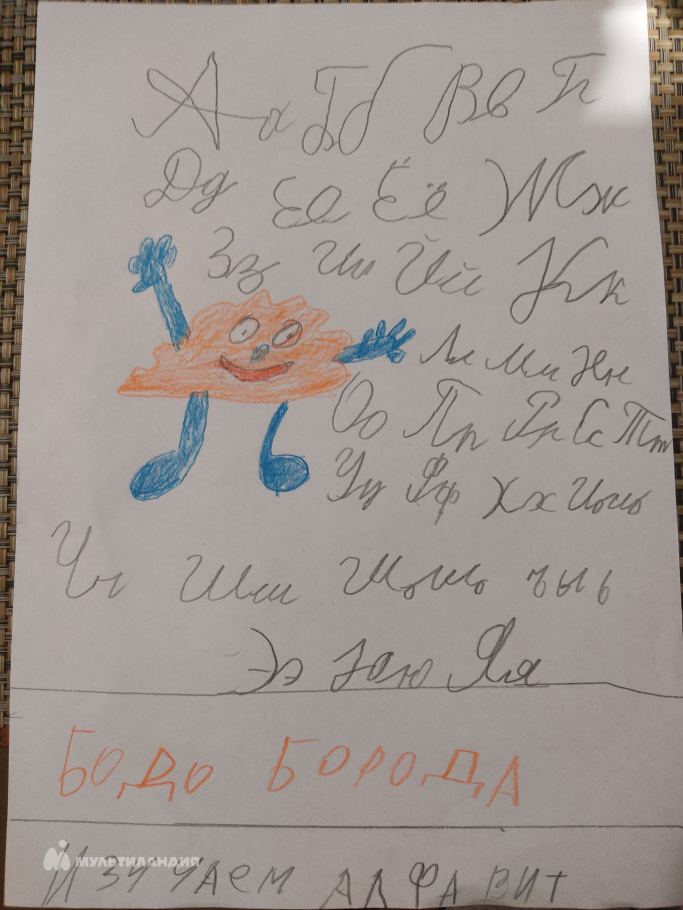 Аа Бб Вв Гг
Дд Ее Ёё Жж
Зз Ии Йй Кк
Лл Мм Нн
Оо Пп Рр Сс Тт
Уу Фф Хх Цц
Чч Шш Щщ ъ ы ь
Ээ Юю Яя
БОДО БОРОДА
ИЗУЧАЕМ АЛФАВИТ
МУЛЬТИЛАНДИЯ